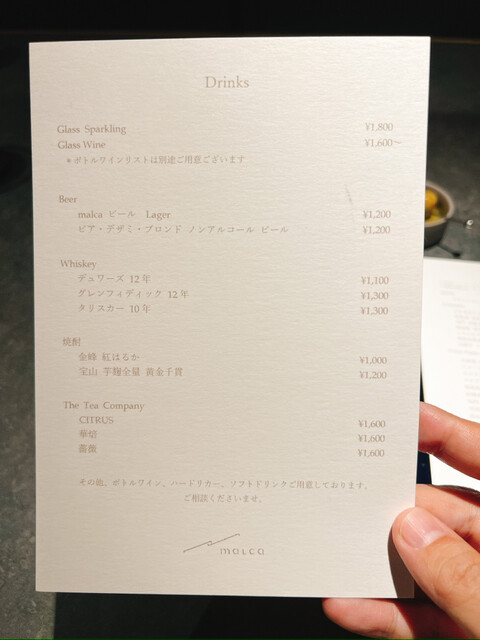 Drinks
Glass Sparkling ¥1,800
Glass Wine ¥1,600〜
＊ボトルワインリストは別途ご用意ございます
Beer
malca ビール Lager ¥1,200
ビア・デザミ・ブロンド ノンアルコール ビール ¥1,200
Whiskey
デュワーズ 12年 ¥1,100
グレンフィディック 12年 ¥1,300
タリスカー 10年 ¥1,300
焼酎
金峰 紅はるか ¥1,000
宝山 芋麹全量 黄金千貫 ¥1,200
The Tea Company
CITRUS ¥1,600
華焙 ¥1,600
薔薇 ¥1,600
その他、ボトルワイン、ハードリカー、ソフトドリンクご用意しております。
ご相談くださいませ。
malca